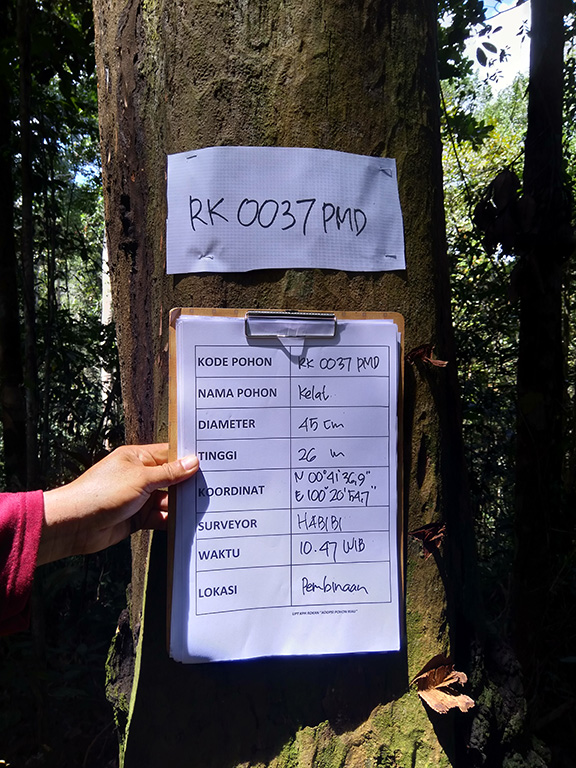 RK 0037 PMD
KODE POHON RK 0037 PMD
NAMA POHON Kelat
DIAMETER 45 cm
TINGGI 26 m
KOORDINAT N 00°41'36,9"
E 100°20'54,7"
SURVEYOR HABIBI
WAKTU 10.47 WIB
LOKASI Pembinaan
UPT KPH ROKAN "ADOPSI POHON RIAU"